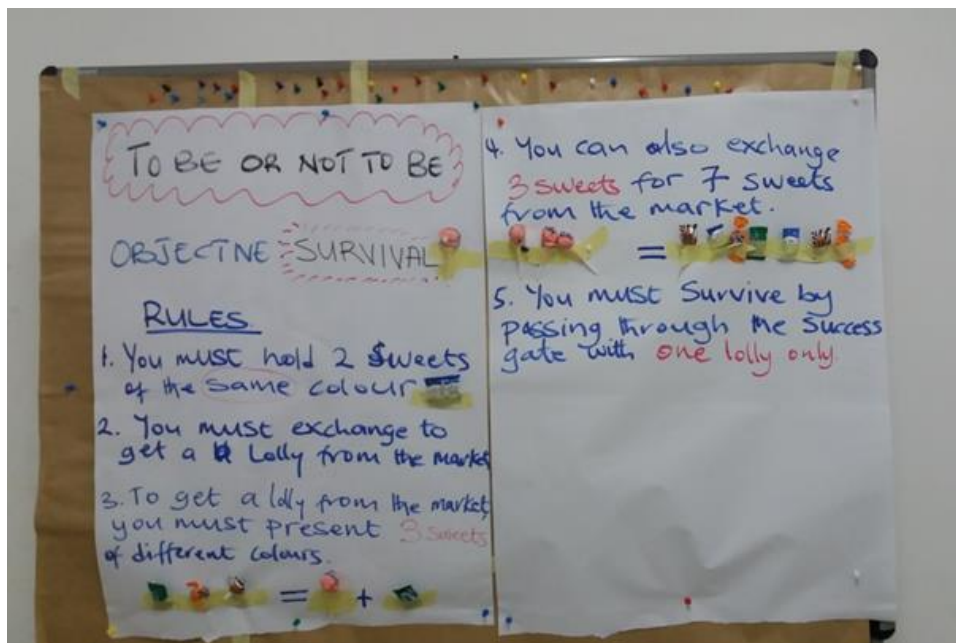 TO BE OR NOT TO BE
OBJECTINE SURVIVAL
RULES
1. You must hold 2 Sweets
of the same colour
2. You must exchange to
get a Lolly from the market
3. To get a lolly from the market
you must present 3 sweets
of different colours.
= +
4. You can also exchange
3 sweets for 7 sweets
from the market.
=
5. You must Survive by
passing through the Success
gate with one lolly only.